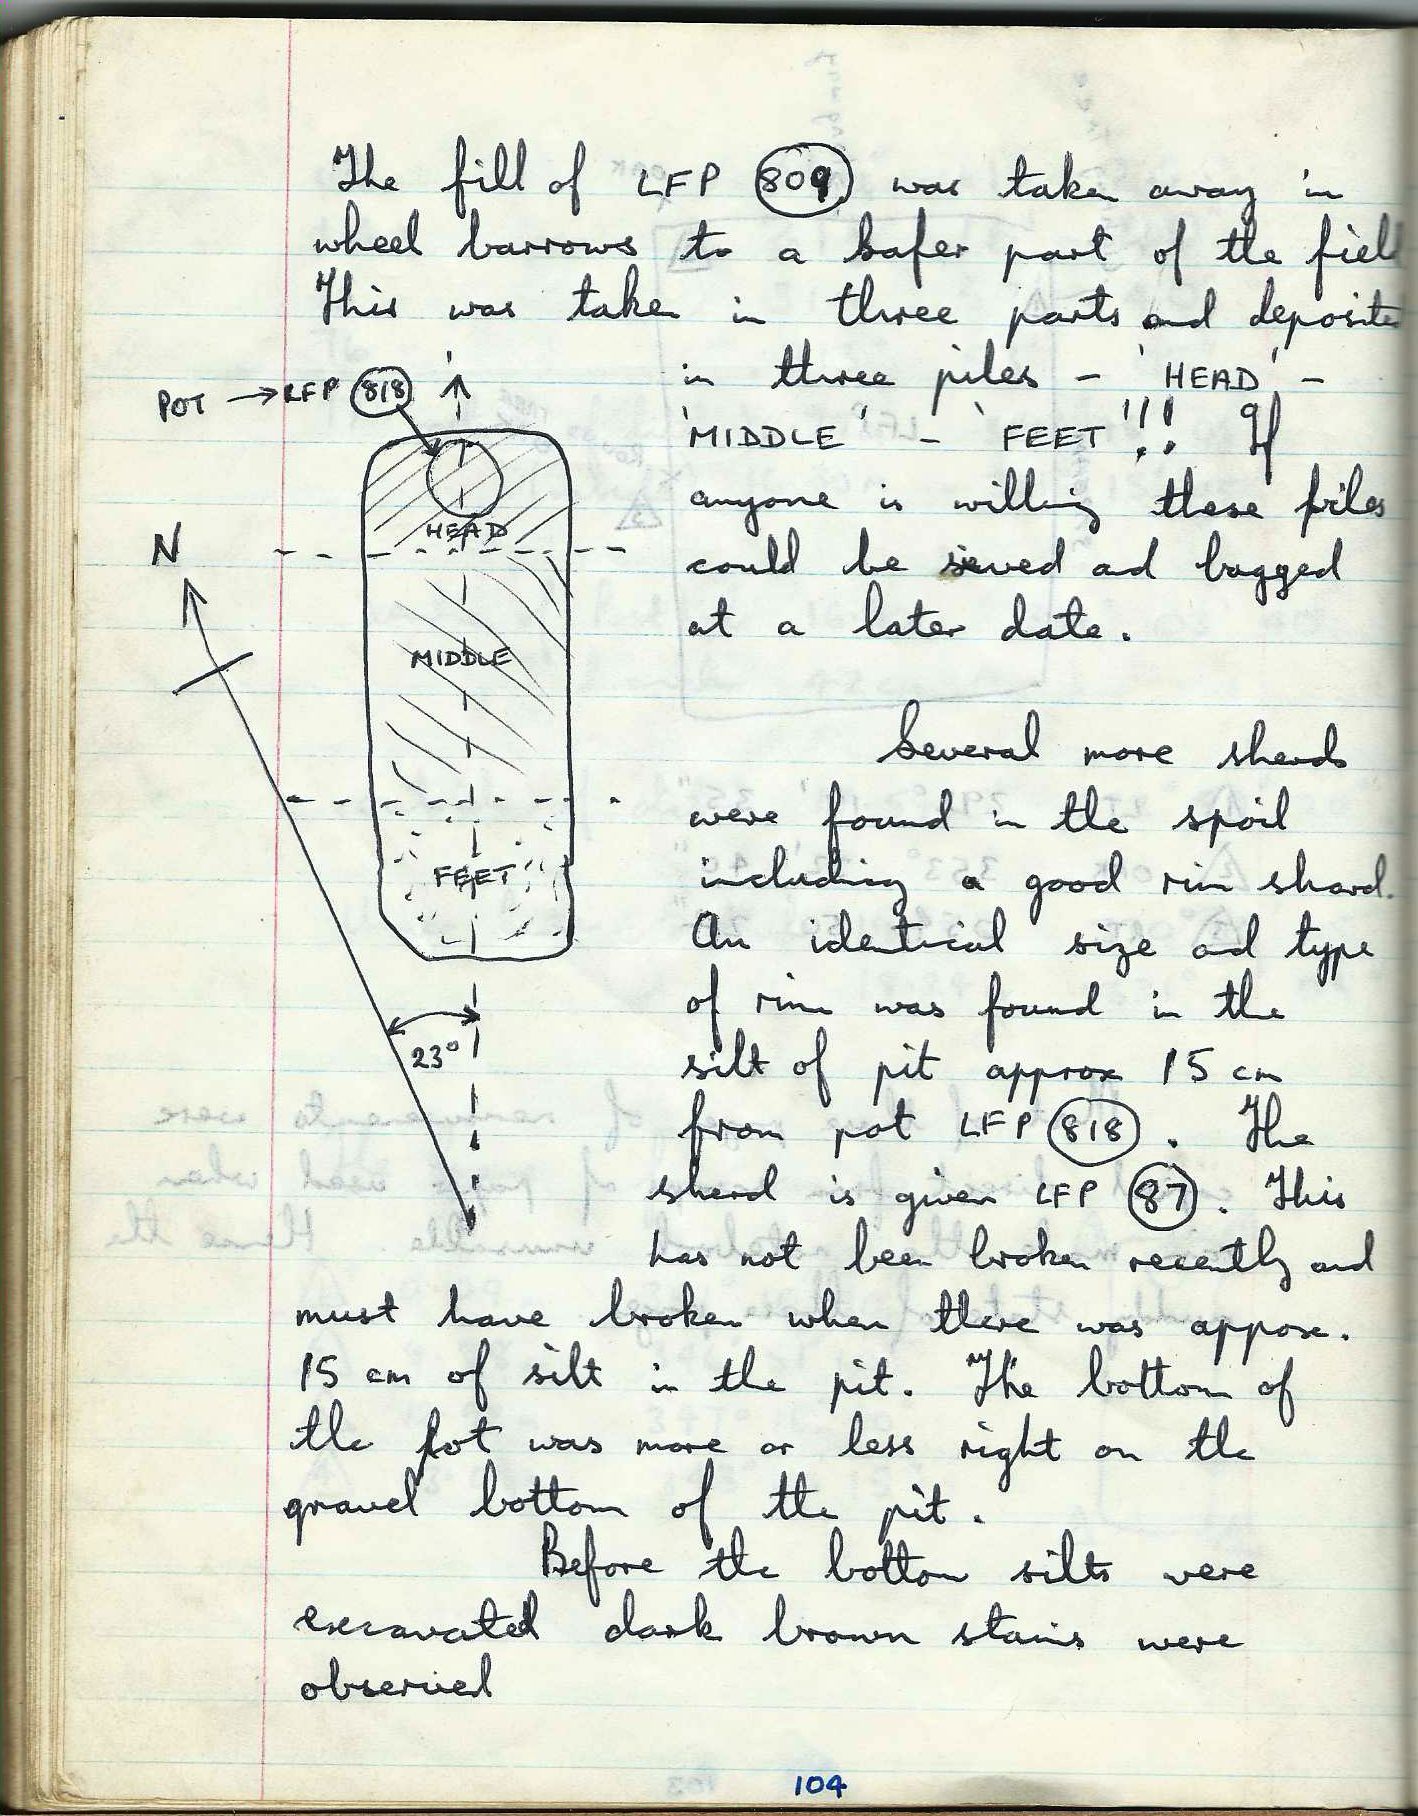 The fill of LFP 809 was taken away in
wheel barrows to a safer part of the fiel
This was taken in three parts and deposite
in three piles - 'HEAD' -
'MIDDLE' - 'FEET'!!! If
anyone is willing these piles
could be sieved and bagged
at a later date.
POT → LFP 818
HEAD
N
MIDDLE
FEET
23°
Several more sherds
were found in the spoil
including a good rim shard.
An identical size and type
of rim was found in the
silt of pit approx 15 cm
from pot LFP 818. The
sherd is given LFP 87. This
has not been broken recently and
must have broken when there was appox.
15 cm of silt in the pit. The bottom of
the pot was more or less right on the
gravel bottom of the pit.
Before the bottom silts were
excavated dark brown stains were
observed
104